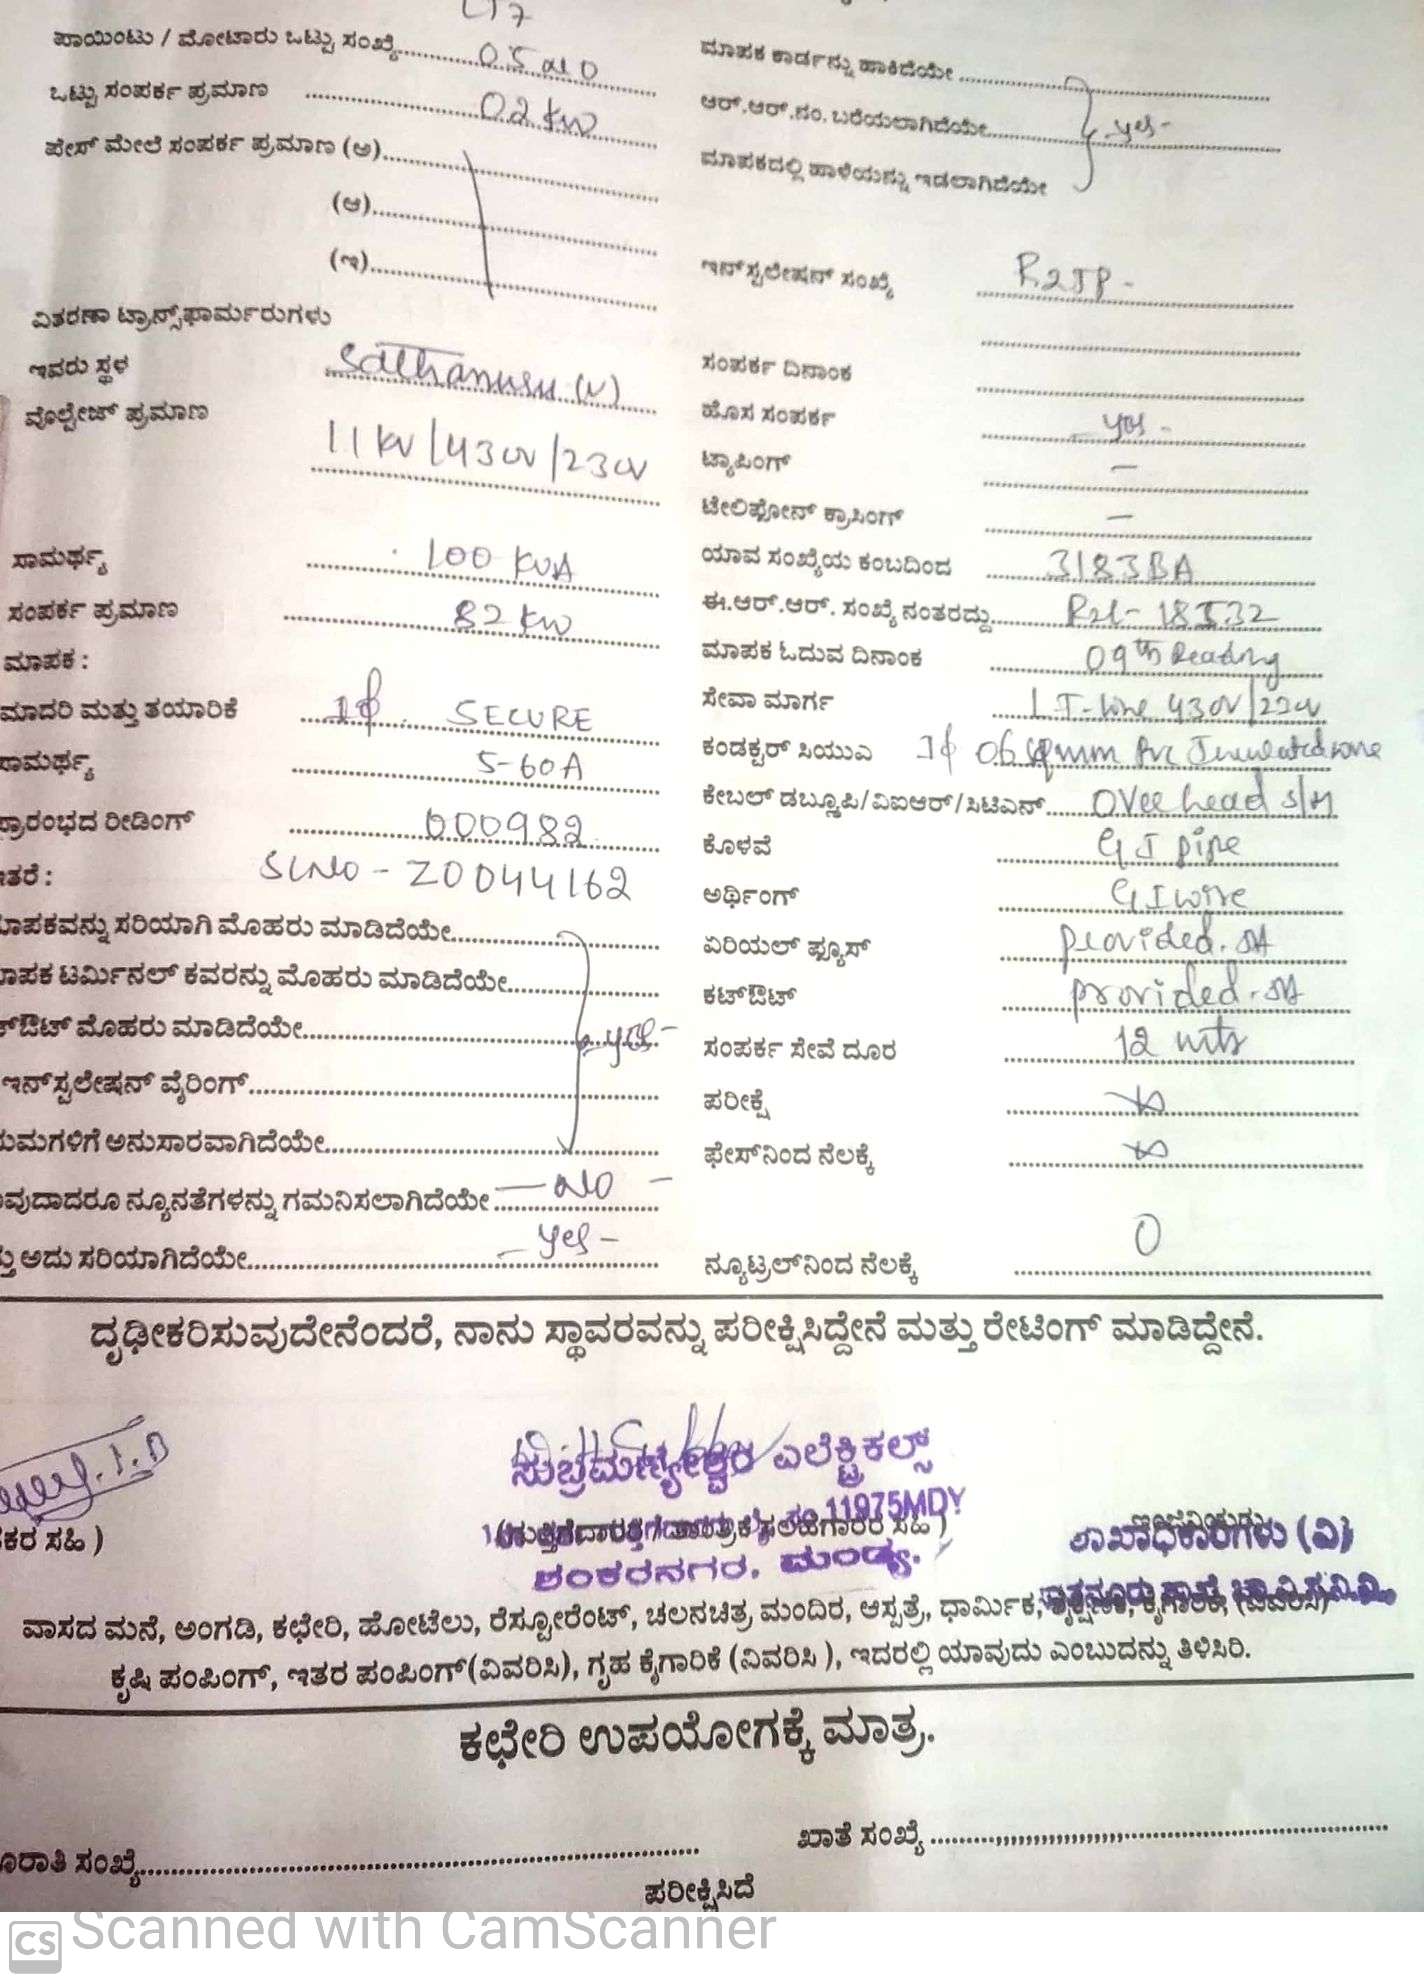 LT7
ಪಾಯಿಂಟು / ಮೋಟಾರು ಒಟ್ಟು ಸಂಖ್ಯೆ 05 no
ಒಟ್ಟು ಸಂಪರ್ಕ ಪ್ರಮಾಣ 02 kw
ಪೇಸ್ ಮೇಲೆ ಸಂಪರ್ಕ ಪ್ರಮಾಣ (ಅ)
(ಆ)
(ಇ)
ವಿತರಣಾ ಟ್ರಾನ್ಸ್‌ಫಾರ್ಮರುಗಳು
ಇವರು ಸ್ಥಳ Sathanuru (v)
ವೊಲ್ಟೇಜ್ ಪ್ರಮಾಣ 11 kv/430v/230v
ಸಾಮರ್ಥ್ಯ 100 KVA
ಸಂಪರ್ಕ ಪ್ರಮಾಣ 82 kw
ಮಾಪಕ :
ಮಾದರಿ ಮತ್ತು ತಯಾರಿಕೆ 1ϕ. SECURE
ಸಾಮರ್ಥ್ಯ 5-60A
ಪ್ರಾರಂಭದ ರೀಡಿಂಗ್ 000982
ಇತರೆ : SLNo - Z0044162
ಮಾಪಕವನ್ನು ಸರಿಯಾಗಿ ಮೊಹರು ಮಾಡಿದೆಯೇ
ಮಾಪಕ ಟರ್ಮಿನಲ್ ಕವರನ್ನು ಮೊಹರು ಮಾಡಿದೆಯೇ
ಕಟ್‌ಔಟ್ ಮೊಹರು ಮಾಡಿದೆಯೇ yes-
ಇನ್‌ಸ್ಟಲೇಷನ್ ವೈರಿಂಗ್
ನಿಯಮಗಳಿಗೆ ಅನುಸಾರವಾಗಿದೆಯೇ
ಯಾವುದಾದರೂ ನ್ಯೂನತೆಗಳನ್ನು ಗಮನಿಸಲಾಗಿದೆಯೇ - No -
ಮತ್ತು ಅದು ಸರಿಯಾಗಿದೆಯೇ - yes -
ಮಾಪಕ ಕಾರ್ಡನ್ನು ಹಾಕಿದೆಯೇ
ಆರ್.ಆರ್.ನಂ. ಬರೆಯಲಾಗಿದೆಯೇ yes-
ಮಾಪಕದಲ್ಲಿ ಹಾಳೆಯನ್ನು ಇಡಲಾಗಿದೆಯೇ
ಇನ್‌ಸ್ಟಲೇಷನ್ ಸಂಖ್ಯೆ
ಸಂಪರ್ಕ ದಿನಾಂಕ
ಹೊಸ ಸಂಪರ್ಕ - yes -
ಟ್ಯಾಪಿಂಗ್ -
ಟೇಲಿಫೋನ್ ಕ್ರಾಸಿಂಗ್ -
ಯಾವ ಸಂಖ್ಯೆಯ ಕಂಬದಿಂದ 3183BA
ಈ.ಆರ್.ಆರ್. ಸಂಖ್ಯೆ ನಂತರದ್ದು
ಮಾಪಕ ಓದುವ ದಿನಾಂಕ 09th Reading
ಸೇವಾ ಮಾರ್ಗ LT-line 430v/230v
ಕಂಡಕ್ಟರ್ ಸಿಯುಎ 1ϕ 06 sqmm Pvc Insulated wire
ಕೇಬಲ್ ಡಬ್ಲೂಪಿ/ವಿಐಆರ್/ಸಿಟಿಎನ್ Over head s/m
ಕೊಳವೆ GI pipe
ಅರ್ಥಿಂಗ್ GI wire
ಏರಿಯಲ್ ಫ್ಯೂಸ್ provided. 5A
ಕಟ್‌ಔಟ್ provided. 5A
ಸಂಪರ್ಕ ಸೇವೆ ದೂರ 12 mts
ಪರೀಕ್ಷೆ ∞
ಫೇಸ್‌ನಿಂದ ನೆಲಕ್ಕೆ ∞
ನ್ಯೂಟ್ರಲ್‌ನಿಂದ ನೆಲಕ್ಕೆ 0
ದೃಢೀಕರಿಸುವುದೇನೆಂದರೆ, ನಾನು ಸ್ಥಾವರವನ್ನು ಪರೀಕ್ಷಿಸಿದ್ದೇನೆ ಮತ್ತು ರೇಟಿಂಗ್ ಮಾಡಿದ್ದೇನೆ.
ಸುಬ್ರಮಣ್ಯೇಶ್ವರ ಎಲೆಕ್ಟ್ರಿಕಲ್ಸ್
11975MDY
(ಗುತ್ತಿಗೆದಾರರ / ತಾಂತ್ರಿಕ ಸಲಹೆಗಾರರ ಸಹಿ)
ಶಂಕರನಗರ, ಮಂಡ್ಯ.
ಕರ ಸಹಿ )
ಶಾಖಾಧಿಕಾರಿಗಳು (ವಿ)
ವಾಸದ ಮನೆ, ಅಂಗಡಿ, ಕಛೇರಿ, ಹೋಟೆಲು, ರೆಸ್ಟೋರೆಂಟ್, ಚಲನಚಿತ್ರ ಮಂದಿರ, ಆಸ್ಪತ್ರೆ, ಧಾರ್ಮಿಕ, ಶೈಕ್ಷಣಿಕ, ಕೈಗಾರಿಕೆ, (ವಿವರಿಸಿ)
ಕೃಷಿ ಪಂಪಿಂಗ್, ಇತರ ಪಂಪಿಂಗ್(ವಿವರಿಸಿ), ಗೃಹ ಕೈಗಾರಿಕೆ (ವಿವರಿಸಿ ), ಇದರಲ್ಲಿ ಯಾವುದು ಎಂಬುದನ್ನು ತಿಳಿಸಿರಿ.
ಕಛೇರಿ ಉಪಯೋಗಕ್ಕೆ ಮಾತ್ರ.
ಖಾತೆ ಸಂಖ್ಯೆ
ರಾತಿ ಸಂಖ್ಯೆ
ಪರೀಕ್ಷಿಸಿದೆ
CS Scanned with CamScanner